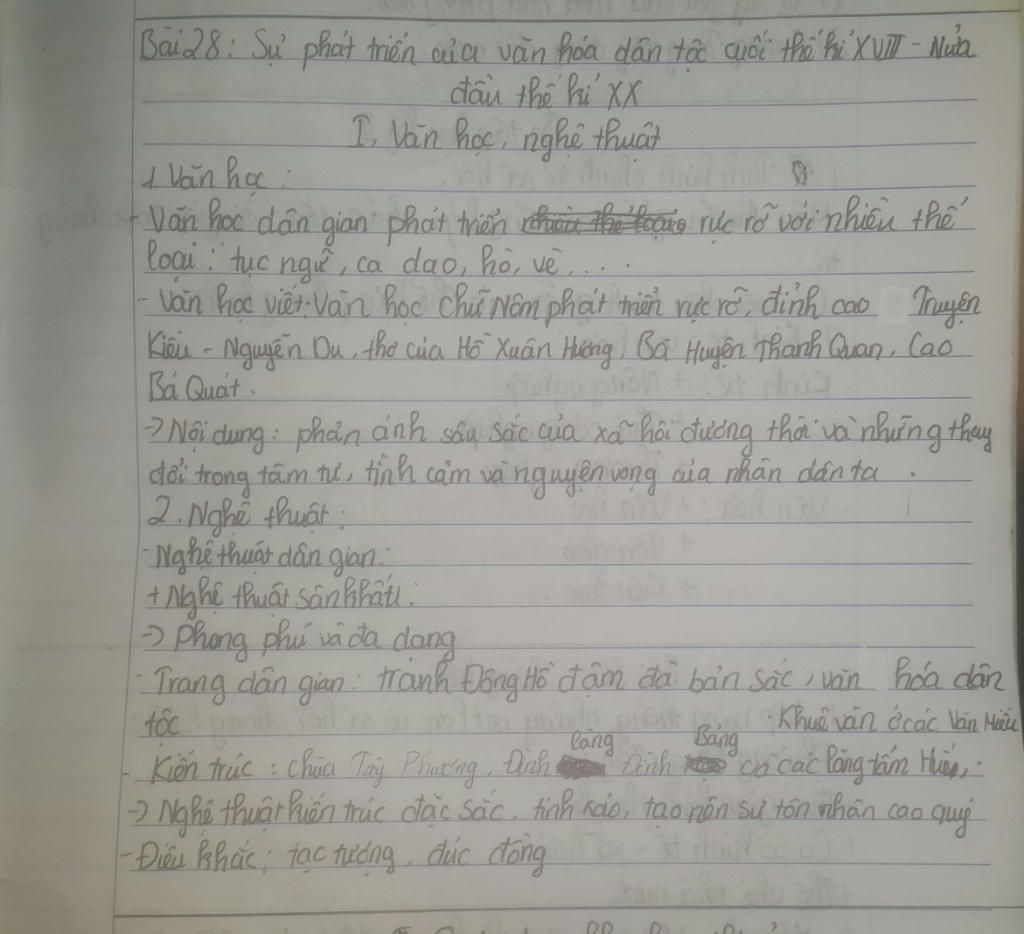 Bài 28: Sự phát triển của văn hóa dân tộc cuối thế kỉ XVIII - Nửa
đầu thế kỉ XX
I, Văn học, nghệ thuật
1 Văn học:
- Văn học dân gian phát triển rực rỡ với nhiều thế
loại: tục ngữ, ca dao, hò, vè,....
- Văn học viết: Văn học chữ Nôm phát triển rực rỡ, đỉnh cao Truyện
Kiều - Nguyễn Du, thơ của Hồ Xuân Hương, Bá Huyện Thanh Quan, Cao
Bá Quát.
-> Nội dung: phản ánh sâu sắc của xã hội đương thời và những thay
đổi trong tâm tư, tình cảm và nguyện vọng của nhân dân ta.
2. Nghệ thuật:
- Nghệ thuật dân gian:
+ Nghệ thuật sân khấu:
-> Phong phú và đa dạng
- Trang dân gian: tranh Đông Hồ đậm đà bản sắc, văn hóa dân
tộc
Khuê văn ở các Văn Miếu
làng Bảng
- Kiến trúc: chùa Tây Phương, Đình Đình các lăng tẩm Huế,
-> Nghệ thuật kiến trúc đặc sắc, tinh xảo, tạo nên sự tôn nhân cao quý
- Điêu khắc: tạc tượng, đúc đồng